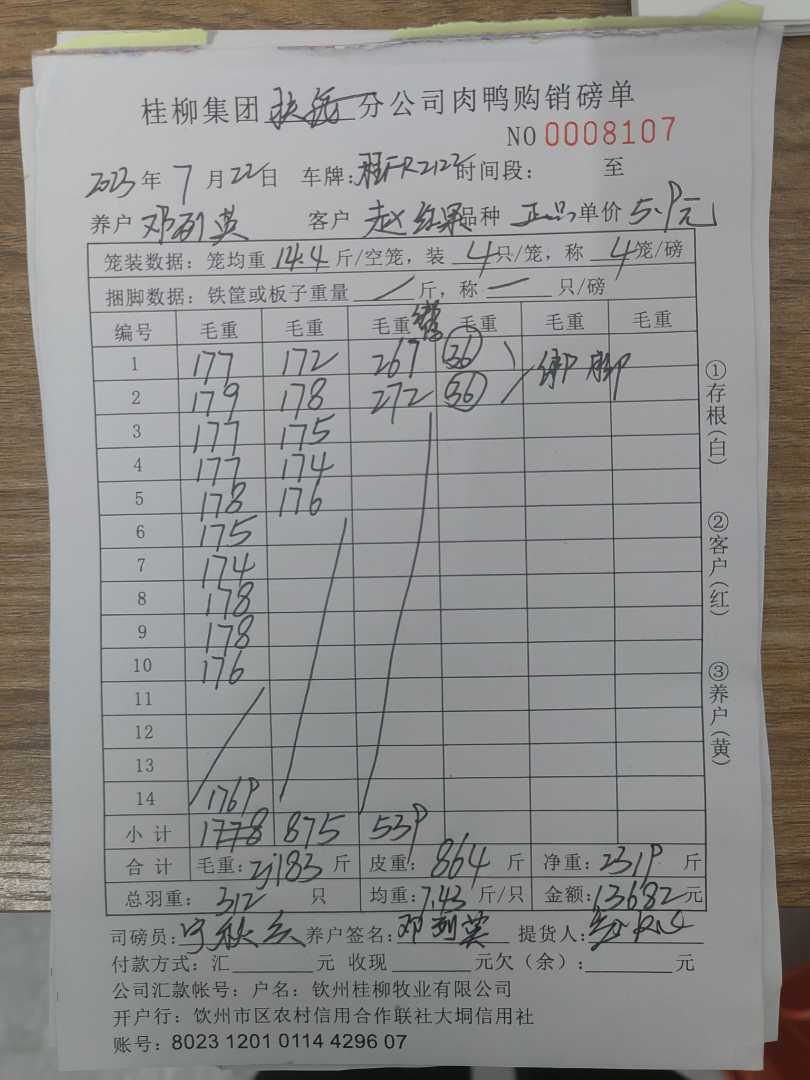 桂柳集团 分公司肉鸭购销磅单
NO 0008107
2023 年 7 月 22 日 车牌: 时间段: 至
养户 邓列英 客户 赵红果 品种 正品 单价 5.9元
笼装数据: 笼均重 14.4 斤/空笼, 装 4 只/笼, 称 4 笼/磅
捆脚数据: 铁筐或板子重量 / 斤, 称 一 只/磅
编号 毛重 毛重 毛重 毛重 毛重 毛重
1 177 172 267 (36) 绑脚
2 179 178 272 (36)
3 177 175
4 177 174
5 178 176
6 175
7 174
8 178
9 178
10 176
11
12
13
14 1769
小计 1778 875 539
合计 毛重: 3183 斤 皮重: 864 斤 净重: 2319 斤
总羽重: 312 只 均重: 7.43 斤/只 金额: 13682 元
司磅员: 养户签名: 邓列英 提货人:
付款方式: 汇 元 收现 元欠(余): 元
公司汇款帐号: 户名: 钦州桂柳牧业有限公司
开户行: 饮州市区农村信用合作联社大垌信用社
账号: 8023 1201 0114 4296 07
①存根(白)
②客户(红)
③养户(黄)